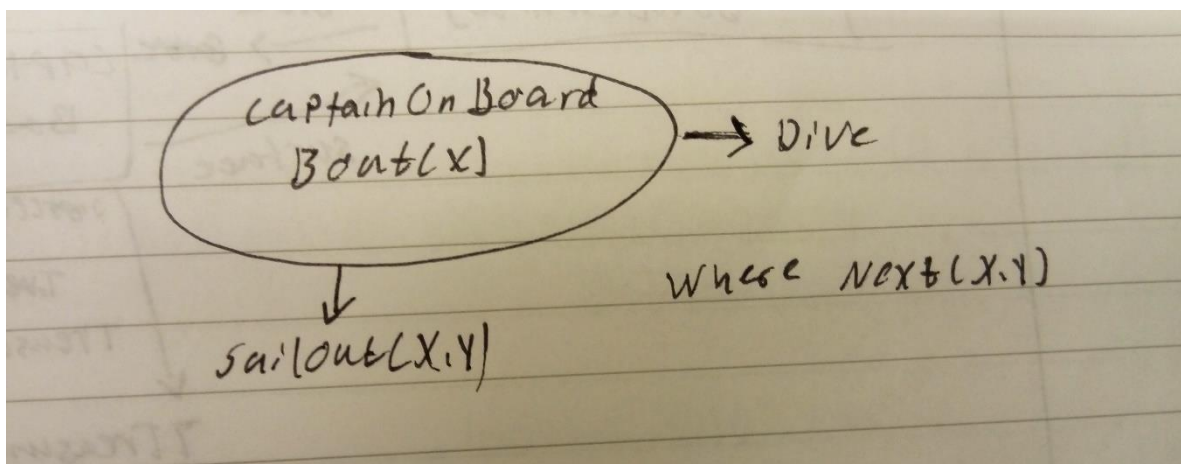 CaptainOnBoard
Boat(X)
Dive
Where Next(X,Y)
Sailout(X,Y)